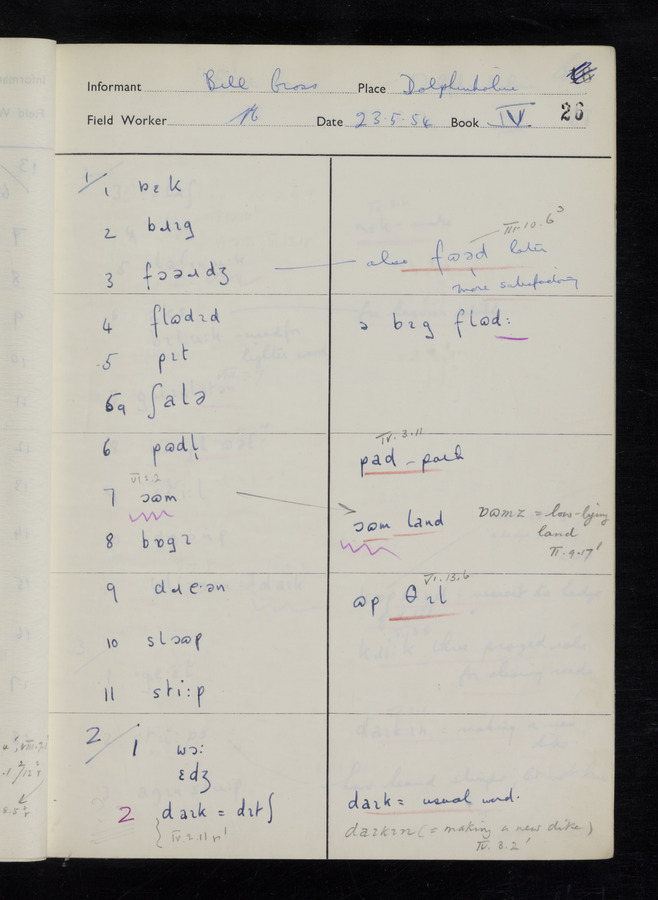 Informant Bill Gross Place Dolphinholme
Field Worker Date 23·5·54 Book IV 26
1/1 bɛk
2 bɹɪg
3 fɔəɹdʒ also fɔəd later
III.10.6
more satisfactory
4 flɷdɪd ə bɪg flɷd:
5 pɪt
5a ʃalə
6 pɷdl̩ pad-pɒθ
IV.3.11
7 ɔəm
ɔəm land = low-lying
land
8 bɒgɪ
9 dɹe·ən ɷp θɪl
VI.13.6
10 slɔəp
11 sti:p
2/1 wɔ:
ɛdʒ
2 daɪk = dɪtʃ daɪk = usual word.
IV 2.11 daɪkɪn (= making a new dike)
IV. 8.2